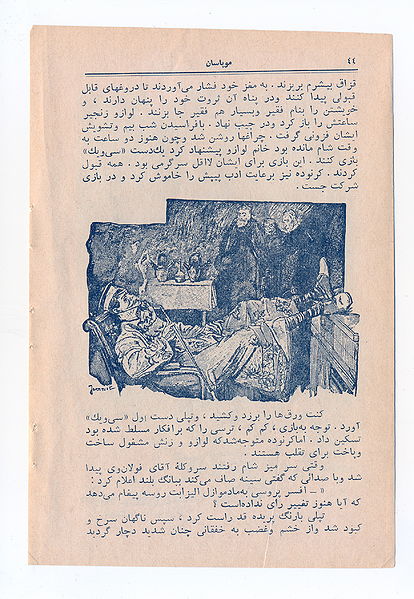 موپاسان
٤٤
قزاق پیشرم بریزند . به مغز خود فشار می‌آوردند تا دروغهای قابل
قبولی پیدا کنند ودر پناه آن ثروت خود را پنهان دارند ، و
خویشتن را بنام فقیر وبسیار هم فقیر جا بزنند . لوازو زنجیر
ساعتش را باز کرد ودر جیب نهاد . بافرارسیدن شب بیم وتشویش
ایشان فزونی گرفت . چراغها روشن شد وچون هنوز دو ساعت به
وقت شام مانده بود خانم لوازو پیشنهاد کرد یك‌دست «سی‌ویك»
بازی کنند . این بازی برای ایشان لااقل سرگرمی بود . همه قبول
کردند . کرنوده نیز برعایت ادب پیپش را خاموش کرد و در بازی
شرکت جست .
Jeanniot
کنت ورق‌ها را برزد وکشید ، وتپلی دست اول «سی‌ویك»
آورد . توجه به‌بازی ، کم کم ، ترسی را که برافکار مسلط شده بود
تسکین داد . اماکرنوده متوجه‌شدکه لوازو و زنش مشغول ساخت
وباخت برای تقلب هستند .
وقتی سر میز شام رفتند سروکلهٔ آقای فولان‌وی پیدا
شد وبا صدائی که گفتی سینه صاف می‌کند ببانگ بلند اعلام کرد :
« ــ افسر پروسی به‌مادموازل الیزابت روسه پیغام می‌دهد
که آیا هنوز تغییر رأی نداده‌است ؟
تپلی بارنگ پریده قد راست کرد ، سپس ناگهان سرخ و
کبود شد واز خشم وغضب به خفقانی چنان شدید دچار گردید